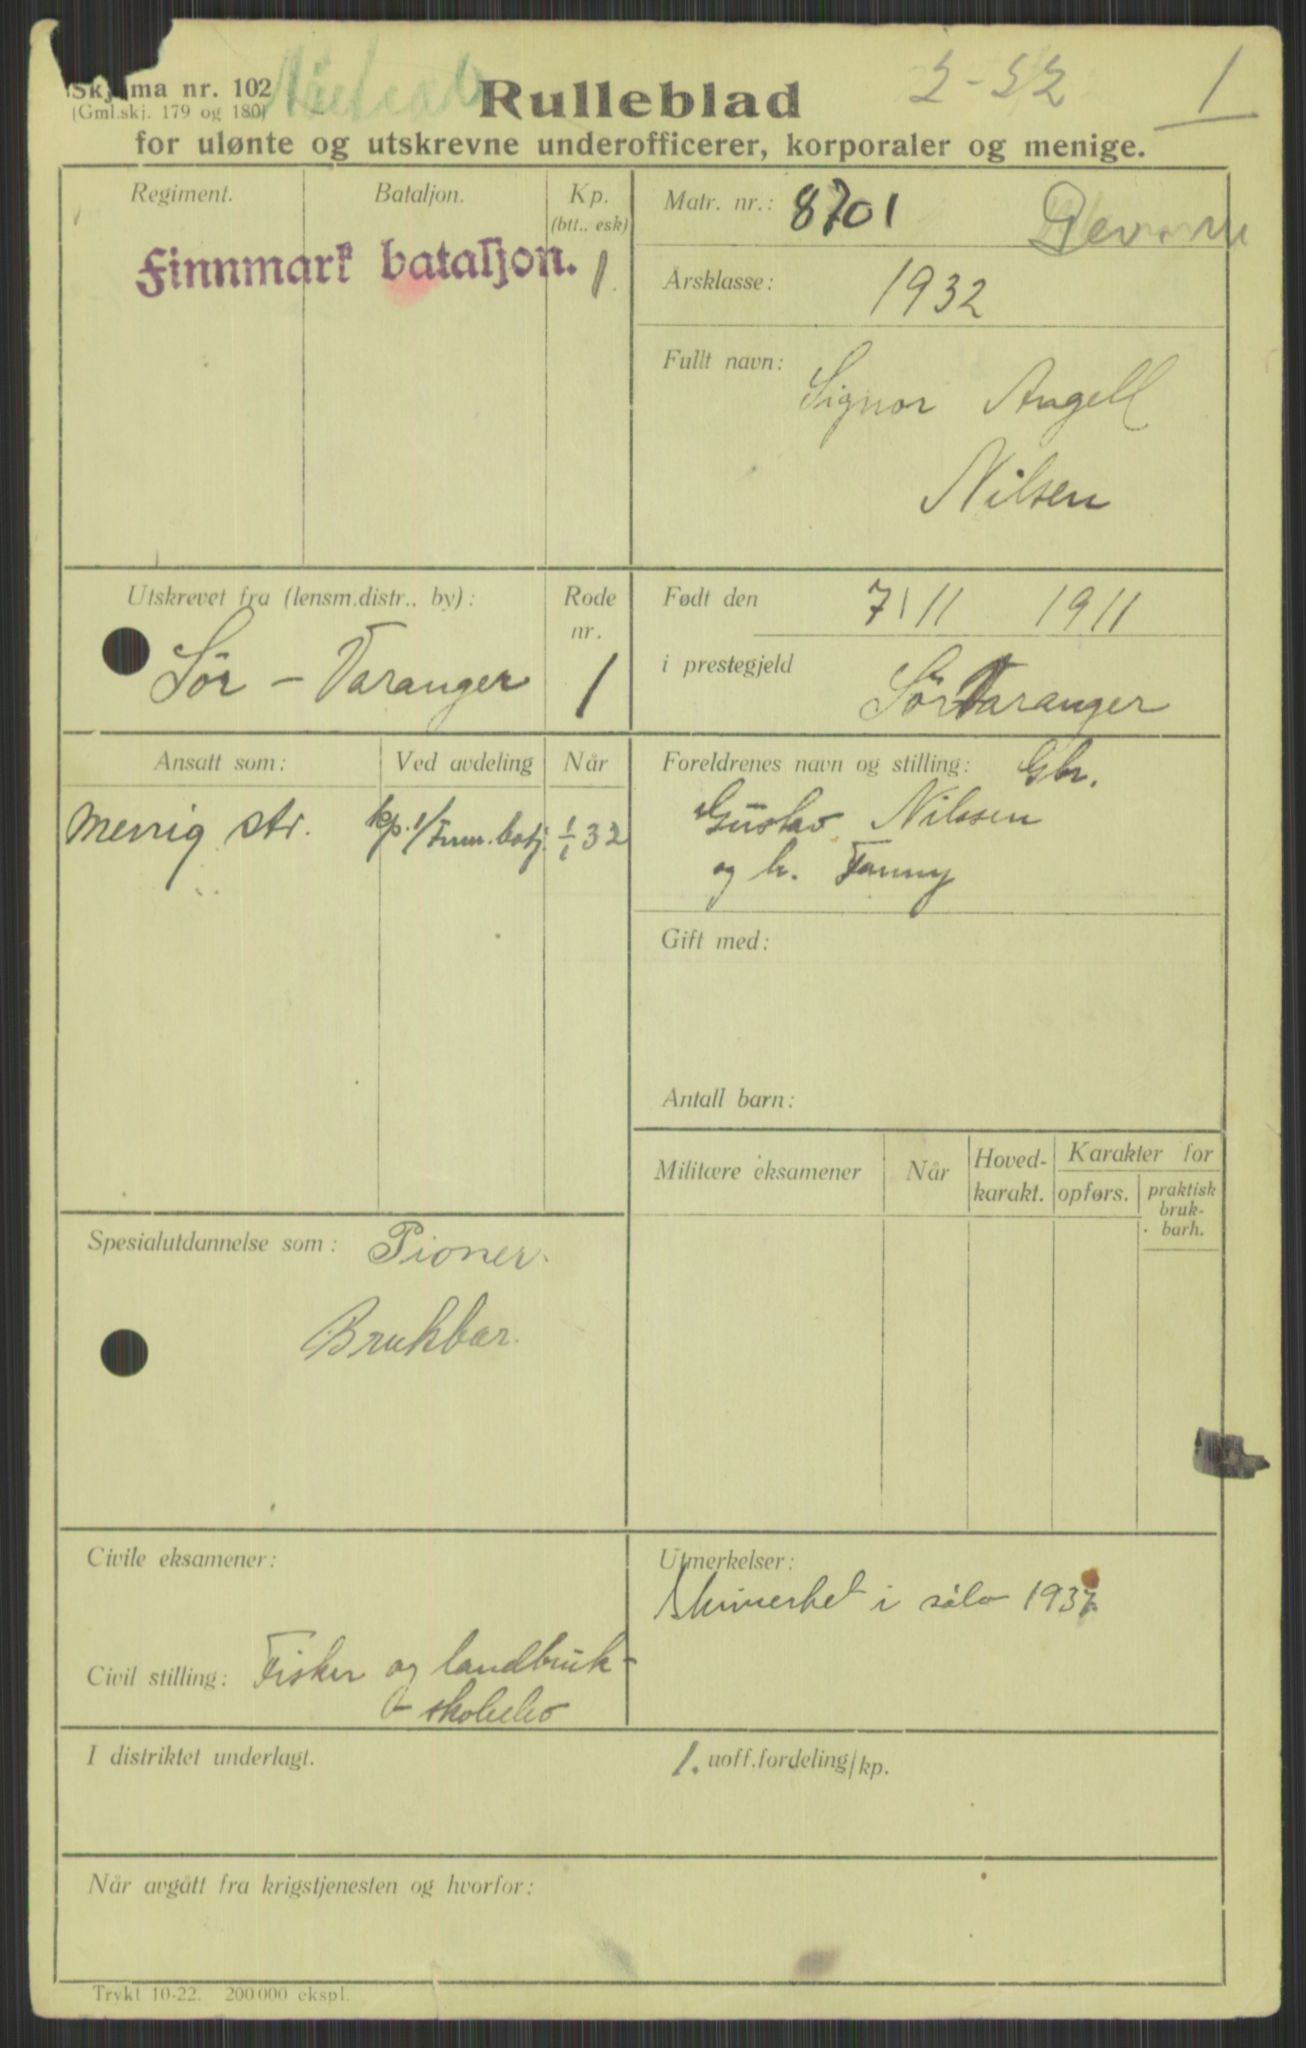 Skjema nr. 102
(Gml.skj. 179 og 180)
Rulleblad
1
for ulønte og utskrevne underofficerer, korporaler og menige.
Regiment. Bataljon. Kp.
(btt., esk)
Finnmark bataljon. 1.
Matr. nr.: 8701
Årsklasse: 1932
Fullt navn: Signor Angell
Nilsen
Utskrevet fra (lensm.distr., by): Rode
nr.
Sör - Varanger 1
Født den 7/11 1911
i prestegjeld SörVaranger
Ansatt som: Ved avdeling Når
Menig str. kp. 1/Finm. batj. 1/1 32
Foreldrenes navn og stilling: Gbr.
Gustav Nilssen
og h. Fanny
Gift med:
Antall barn:
Militære eksamener Når Hoved-
karakt. Karakter for
opførs. praktisk
bruk-
barh.
Spesialutdannelse som: Pioner.
Brukbar.
Civile eksamener:
Civil stilling: Fisker og landbruk-
skoleelev
Utmerkelser:
Skimerket i sölv 1937.
I distriktet underlagt. 1. uoff.fordeling/kp.
Når avgått fra krigstjenesten og hvorfor:
Trykt 10-22. 200 000 ekspl.